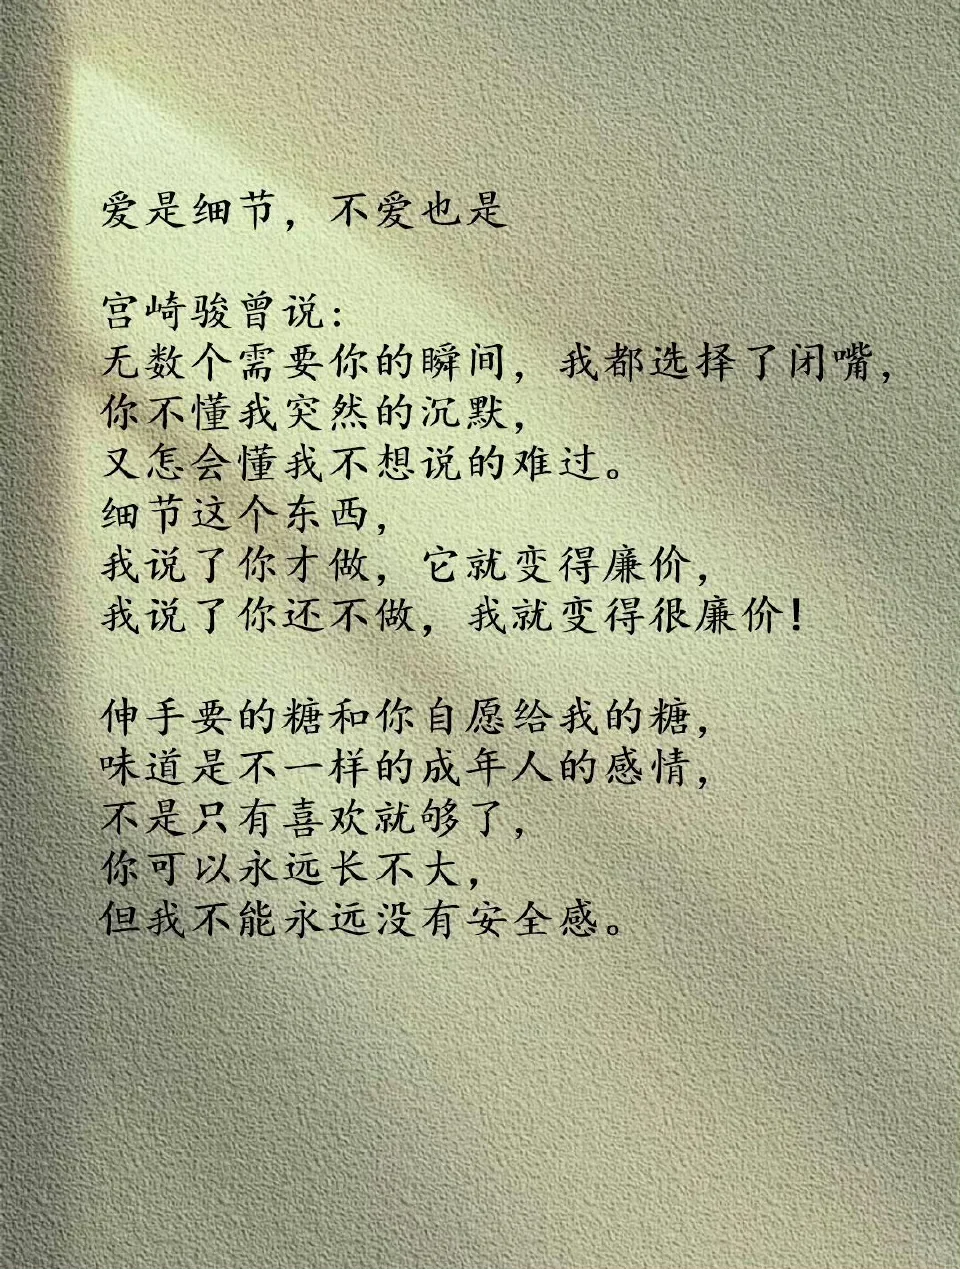 爱是细节，不爱也是
宫崎骏曾说：
无数个需要你的瞬间，我都选择了闭嘴，
你不懂我突然的沉默，
又怎会懂我不想说的难过。
细节这个东西，
我说了你才做，它就变得廉价，
我说了你还不做，我就变得很廉价！
伸手要的糖和你自愿给我的糖，
味道是不一样的成年人的感情，
不是只有喜欢就够了，
你可以永远长不大，
但我不能永远没有安全感。